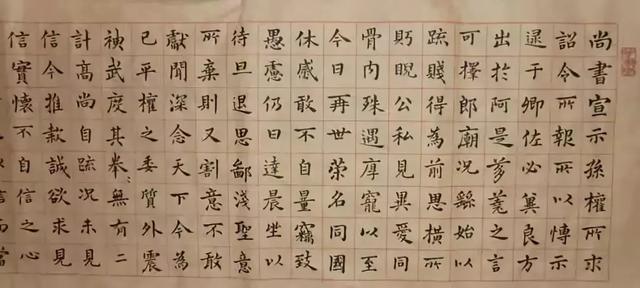 尚書宣示孫權所求
詔令所報所以博示
逮于卿佐必冀良方
出於阿是芻蕘之言
可擇郎廟況繇始以
疏賤得為前恩橫所
眄睨公私見異愛同
骨肉殊遇厚寵以至
今日再世榮名同國
休慼敢不自量竊致
愚慮仍日達晨坐以
待旦退思鄙淺聖意
所棄則又割意不敢
獻聞深念天下今為
已平權之委質外震
神武度其拳無有二
計高尚自疏況未見
信今推款誠欲求見
信實懷不自信之心